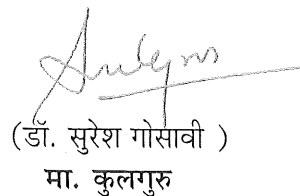 (डॉ. सुरेश गोसावी )
मा. कुलगुरु